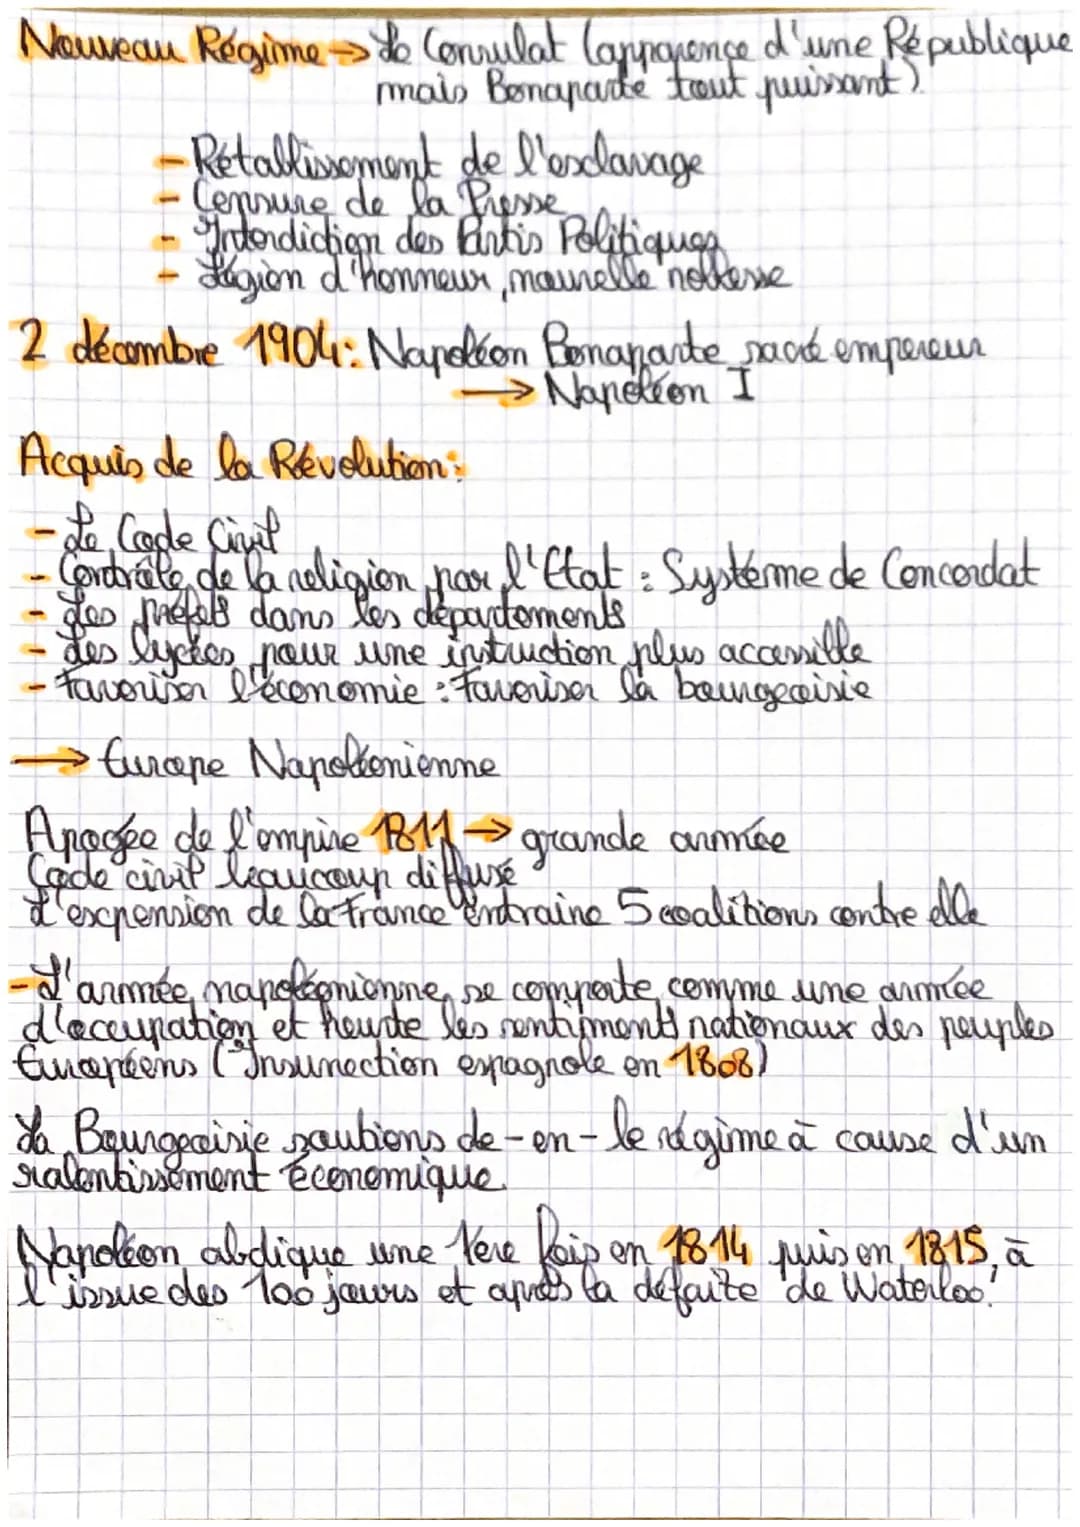 Nouveau Régime → Le Consulat (apparence d'une République
mais Bonaparte tout puissant).
- Rétablissement de l'esclavage
- Censure de la Presse
- Interdiction des Partis Politiques
- Légion d'honneur, nouvelle noblesse
2 décembre 1904: Napoléon Bonaparte sacré empereur
→ Napoléon I
Acquis de la Révolution:
- Le Code Civil
- Contrôle de la religion par l'Etat : Système de Concordat
- des préfets dans les départements
- des lycées pour une instruction plus accessible
- Favoriser l'économie : Favoriser la bourgeoisie
→ Europe Napoléonienne
Apogée de l'empire 1811 → grande armée
Code civil beaucoup diffusé
L'expension de la France entraine 5 coalitions contre elle
- L'armée napoléonienne se comporte comme une armée
d'occupation et heurte les sentiments nationaux des peuples
Européens (Insurrection espagnole en 1808)
La Bourgeoisie soutiens de-en-le régime à cause d'un
ralentissement économique.
Napoléon abdique une 1ère fois en 1814 puis en 1815, à
l'issue des 100 jours et après la défaite de Waterloo.